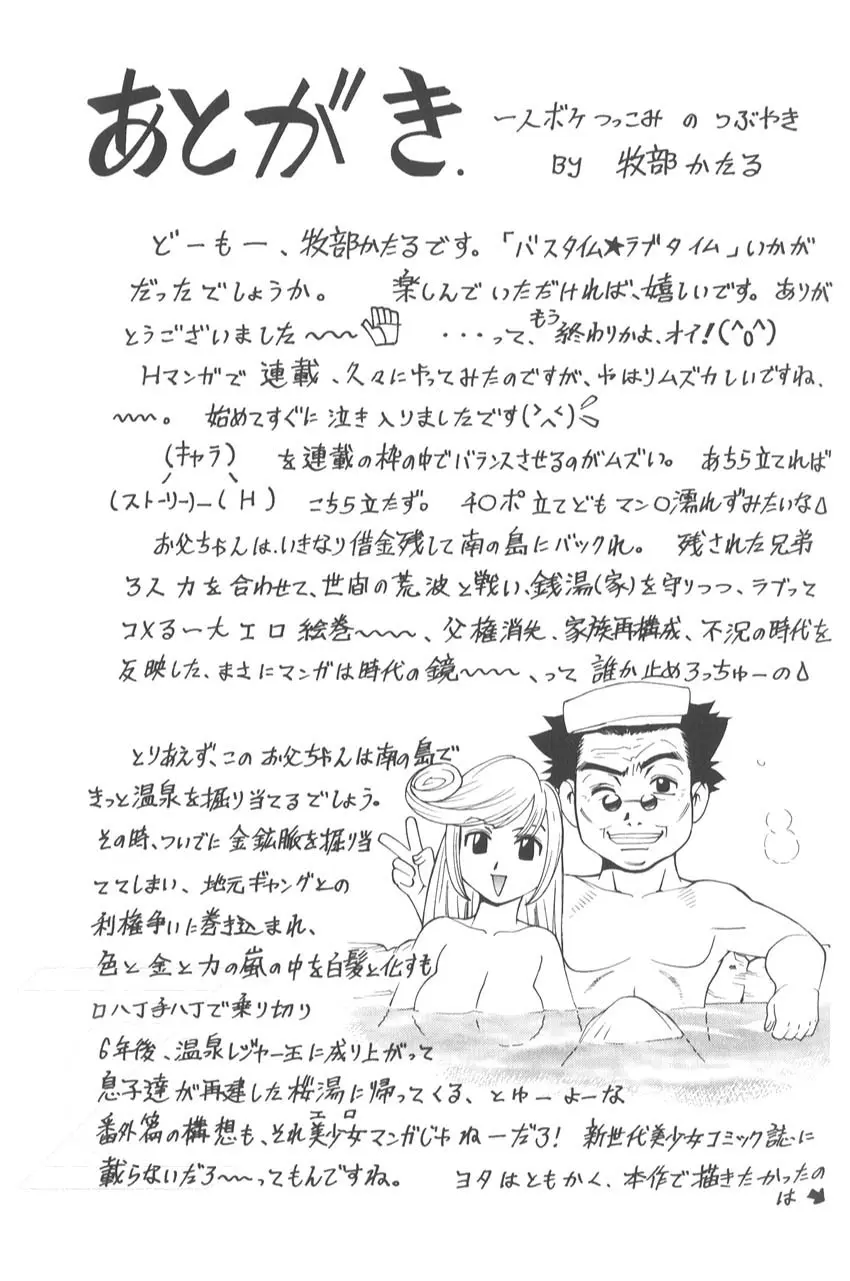 あとがき.
一人ボケつっこみ の つぶやき
BY 牧部かたる
どーもー、牧部かたるです。「バスタイム★ラブタイム」いかが
だったでしょうか。 楽しんでいただければ、嬉しいです。ありが
とうございました〜〜 ・・・って、もう終わりかよ、オイ!(^o^)
Hマンガで連載、久々にやってみたのですが、やはりムズカしいですね、
〜〜。 始めてすぐに泣き入りましたです(>へ<)
(キャラ)
(ストーリー)ー(H) を連載の枠の中でバランスさせるのがムズい。 あちら立てれば
こちら立たず。 チ〇ポ立てどもマン〇濡れずみたいな
お父ちゃんは、いきなり借金残して南の島にバックれ。 残された兄弟
3人力を合わせて、世間の荒波と戦い、銭湯(家)を守りつつ、ラブって
コメる一大エロ絵巻〜〜〜、父権消失、家族再構成、不況の時代を
反映した、まさにマンガは時代の鏡〜〜〜、って誰か止めろっちゅーの
とりあえず、このお父ちゃんは南の島で
きっと温泉を掘り当てるでしょう。
その時、ついでに金鉱脈を掘り当
ててしまい、地元ギャングとの
利権争いに巻き込まれ、
色と金と力の嵐の中を白髪と化すも
口八丁手八丁で乗り切り
6年後、温泉レジャー王に成り上がって
息子達が再建した桜湯に帰ってくる、とゆーよーな
番外篇の構想も、それ美少女エロマンガじゃねーだろ! 新世代美少女コミック誌に
載らないだろ〜〜ってもんですね。 ヨタはともかく、本作で描きたかったの
は